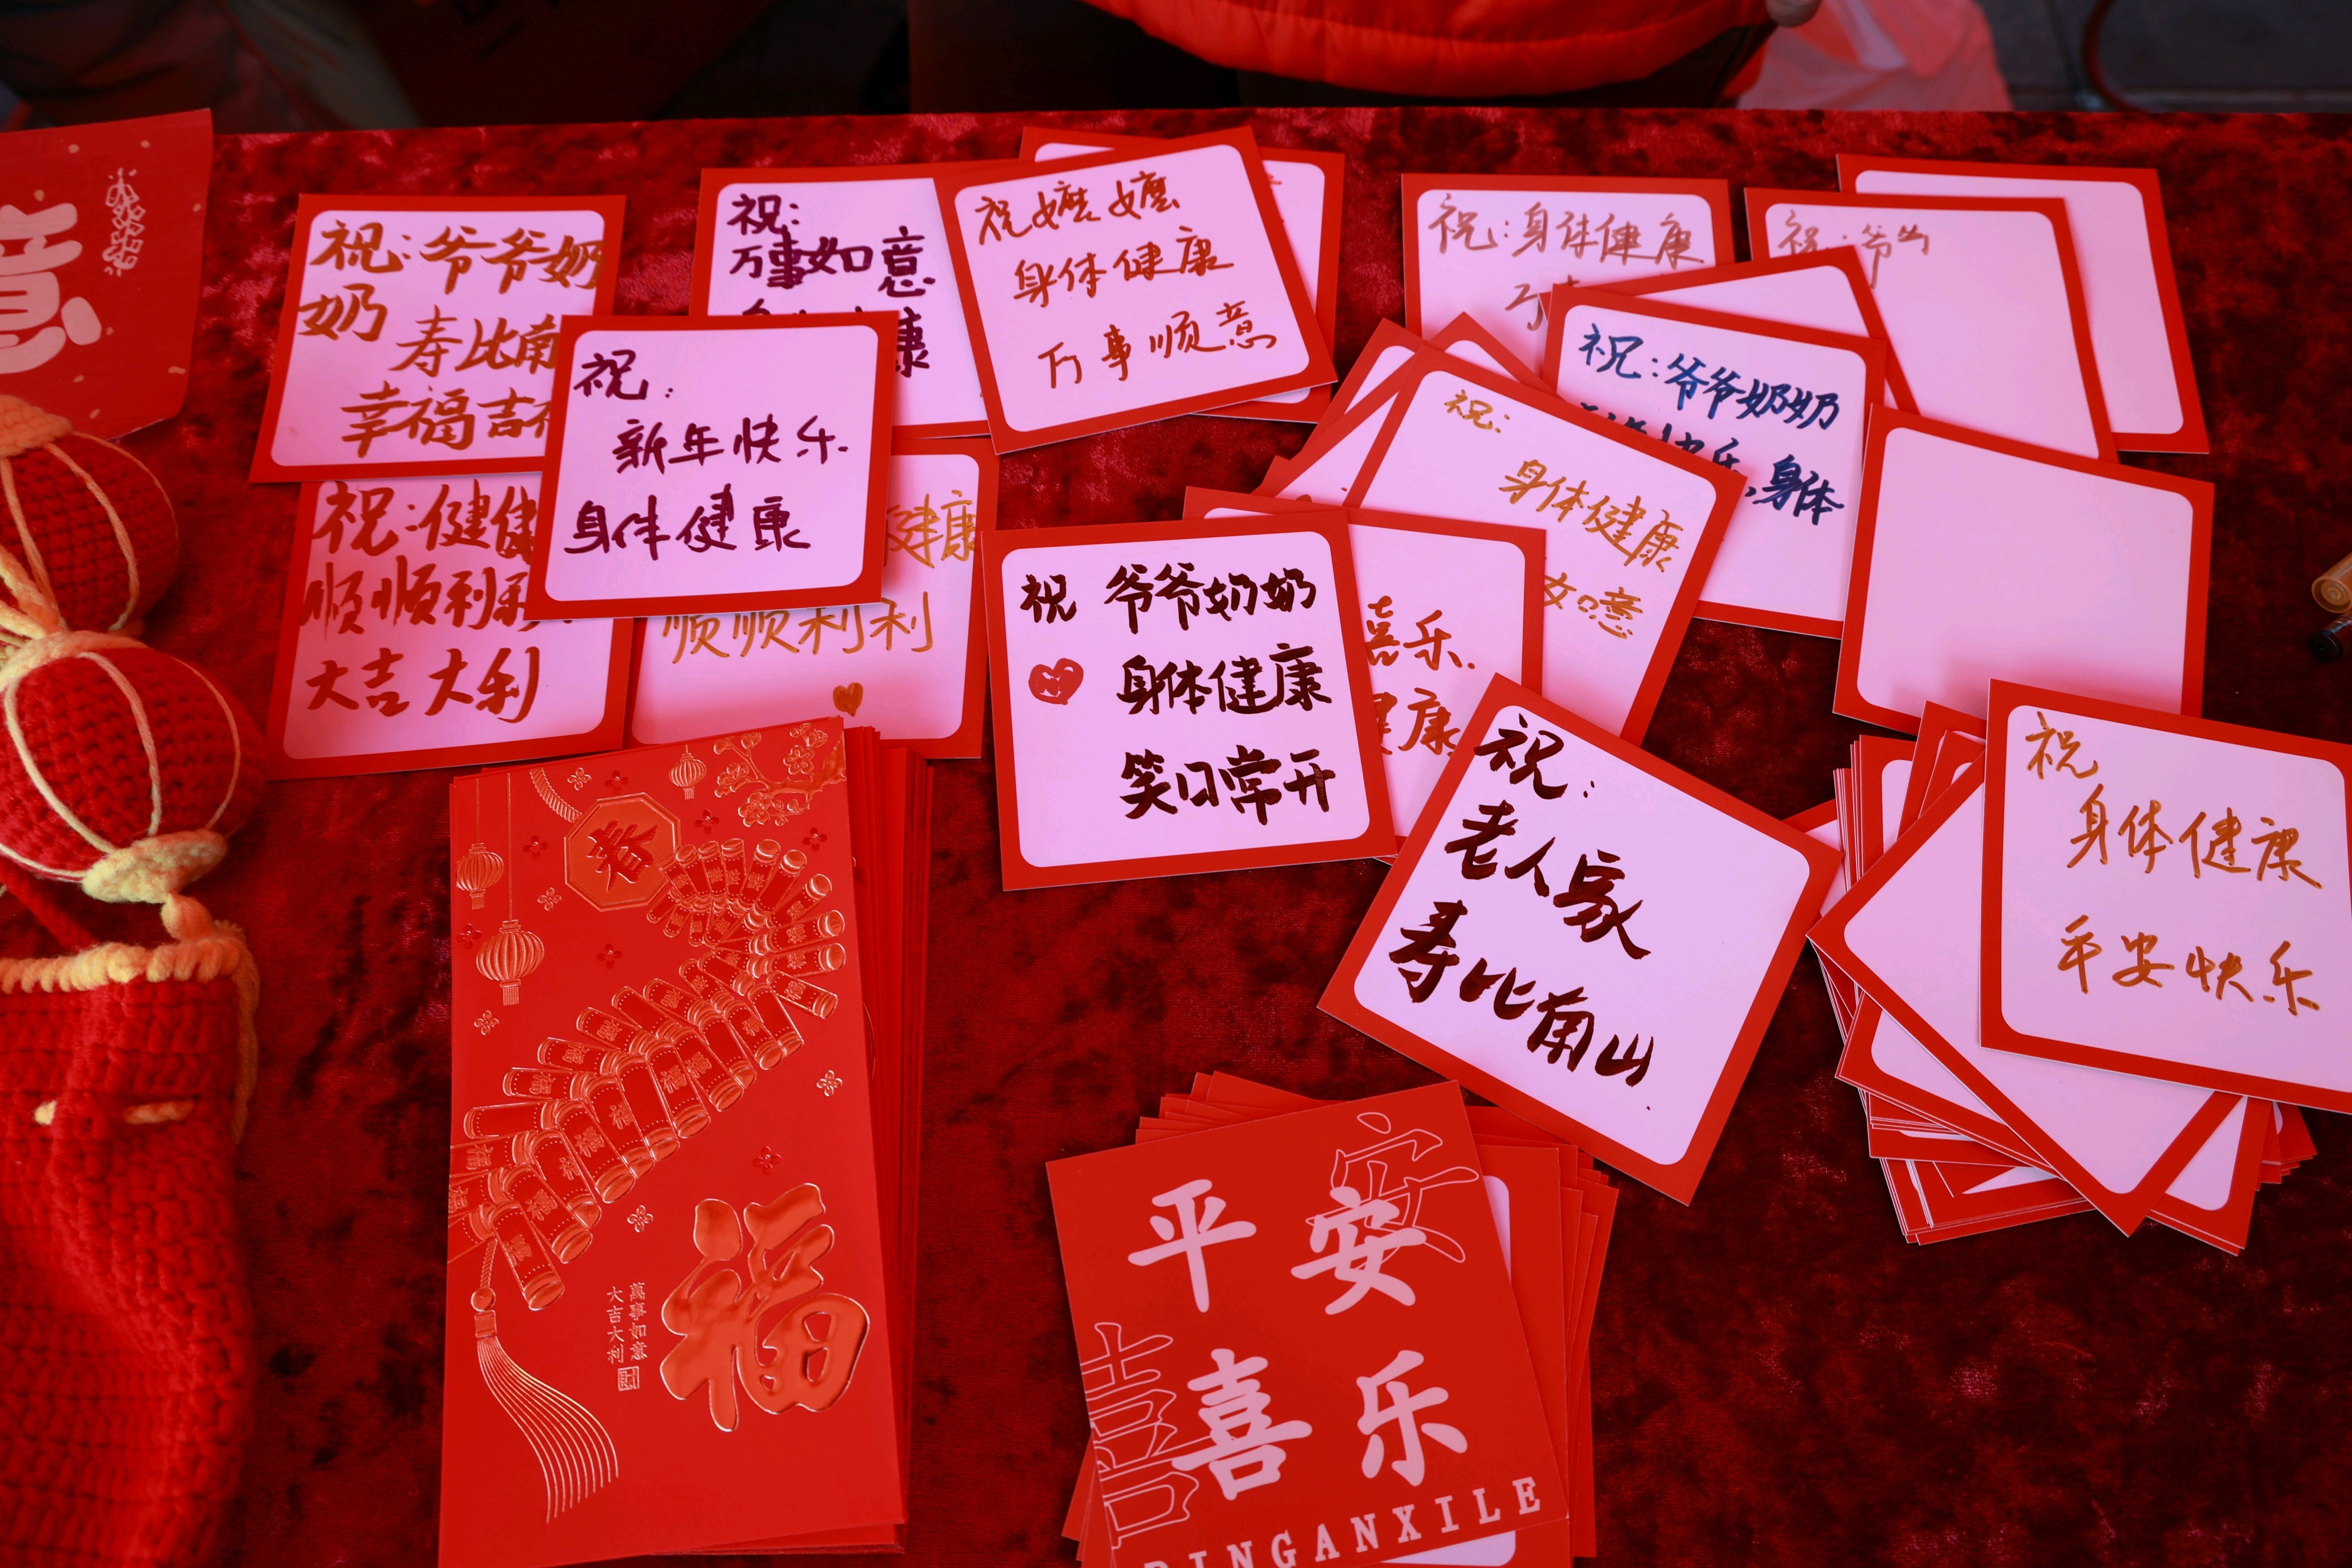 意
祝:爷爷奶
奶
寿比南
幸福吉祥
祝:
万事如意
康
祝嬷嬷
身体健康
万事顺意
祝:身体健康
万事
祝:爷
祝:
新年快乐.
身体健康
祝:健健
顺顺利利
大吉大利
健康
顺顺利利
祝:爷爷奶奶
快乐,身体
祝:
身体健康
如意
祝 爷爷奶奶
身体健康
笑口常开
喜乐.
健康
祝:
老人家
寿比南山
祝
身体健康
平安快乐
春
福
萬事如意
大吉大利
平安
喜乐
PINGANXILE